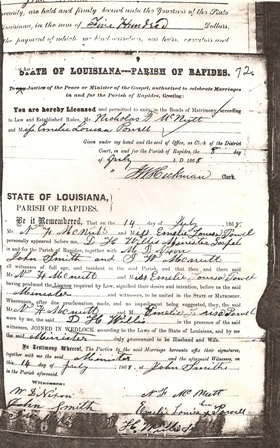 security, are held and firmly bound unto the Governor of the State
Louisiana, in the sum of Five Hundred Dollars,
the payment of which
STATE OF LOUISIANA---PARISH OF RAPIDES. 72
To any Justice of the Peace or Minister of the Gospel, authorized to celebrate Marriages
in and for the Parish of Rapides, Greeting:
You are hereby Licensed and permitted to unite in the Bonds of Matrimony, according
to Law and Established Rules, Mr. Nicholas F McNutt
and Emelie Louisa Powell
Given under my hand and the seal of Office, as Clerk of the District
Court, in and for the Parish of Rapides, this 8 day
of July A. D. 1868
Clerk.
STATE OF LOUISIANA,
PARISH OF RAPIDES.
Be it Remembered, That on the 14 day of July 1868,
Mr. N F McNutt and Miss Emelie Louisa Powell
personally appeared before me, D H Willis Minister Gospel
in and for the Parish of Rapides, together with
John Smith and
all witnesses of full age, and resident in the said Parish and that then and there said
Mr. N F McNutt and Miss Emelie Louisa Powell
having produced the License required by Law, signified their desire and intention, before me the said
Minister and witnesses, to be united in the State of Matrimony.
Whereupon, after due proclamation made, and no impediment being suggested, they, the said
Mr. N F McNutt and
were by me, the said D H Willis in the presence of the said
witnesses, JOINED IN WEDLOCK according to the Laws of the State of Louisiana, and by me
the said Minister duly pronounced to be Husband and Wife.
In Testimony Whereof, The Parties to the said Marriage covenant affix their signature,
together with me the said Minister and the aforesaid Witness, on
14 day of July 1868, at John Smiths
in the Parish aforesaid.
Witnesses:
N F McNutt
Smith
Emelie Louisa Powell
D H Willis